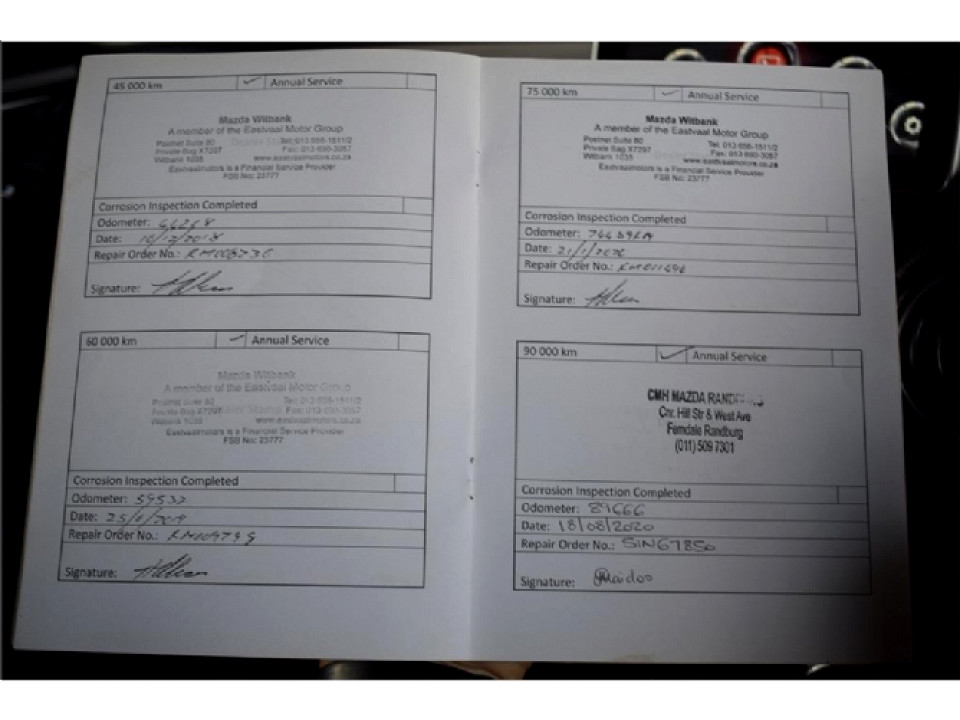 45 000 km Annual Service
Mazda Witbank
A member of the Eastvaal Motor Group
Postnet Suite 80 Tel: 013-656-1511/2
Private Bag X7297 Fax: 013-690-3057
Witbank 1035 www.eastvaalmotors.co.za
Eastvaalmotors is a Financial Service Provider
FSB No: 23777
Corrosion Inspection Completed
Odometer:
Date: 10/12/2018
Repair Order No.:
Signature:
60 000 km Annual Service
Mazda Witbank
A member of the Eastvaal Motor Group
Postnet Suite 80 Tel: 013-656-1511/2
Private Bag X7297 Fax: 013-690-3057
Witbank 1035 www.eastvaalmotors.co.za
Eastvaalmotors is a Financial Service Provider
FSB No: 23777
Corrosion Inspection Completed
Odometer: 59532
Date:
Repair Order No.:
Signature:
75 000 km Annual Service
Mazda Witbank
A member of the Eastvaal Motor Group
Postnet Suite 80 Tel: 013-656-1511/2
Private Bag X7297 Fax: 013-690-3057
Witbank 1035 www.eastvaalmotors.co.za
Eastvaalmotors is a Financial Service Provider
FSB No: 23777
Corrosion Inspection Completed
Odometer:
Date: 21/1/2020
Repair Order No.:
Signature:
90 000 km Annual Service
CMH MAZDA
Cnr. Hill Str & West Ave
Ferndale Randburg
(011) 509 7301
Corrosion Inspection Completed
Odometer: 89666
Date: 18/08/2020
Repair Order No.: SIN67850
Signature: